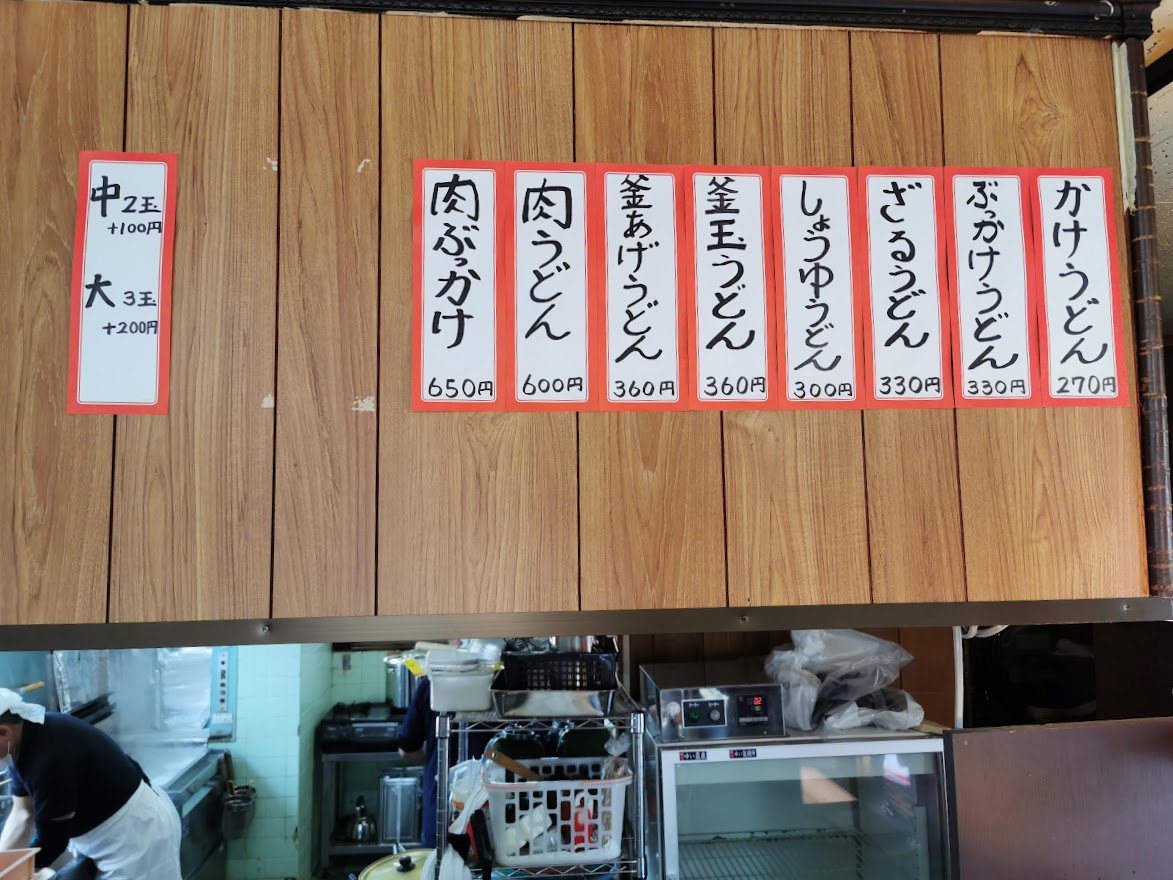 かけうどん
270円
ぶっかけうどん
330円
ざるうどん
330円
しょうゆうどん
300円
釜玉うどん
360円
釜あげうどん
360円
肉うどん
600円
肉ぶっかけ
650円
中 2玉
+100円
大 3玉
+200円